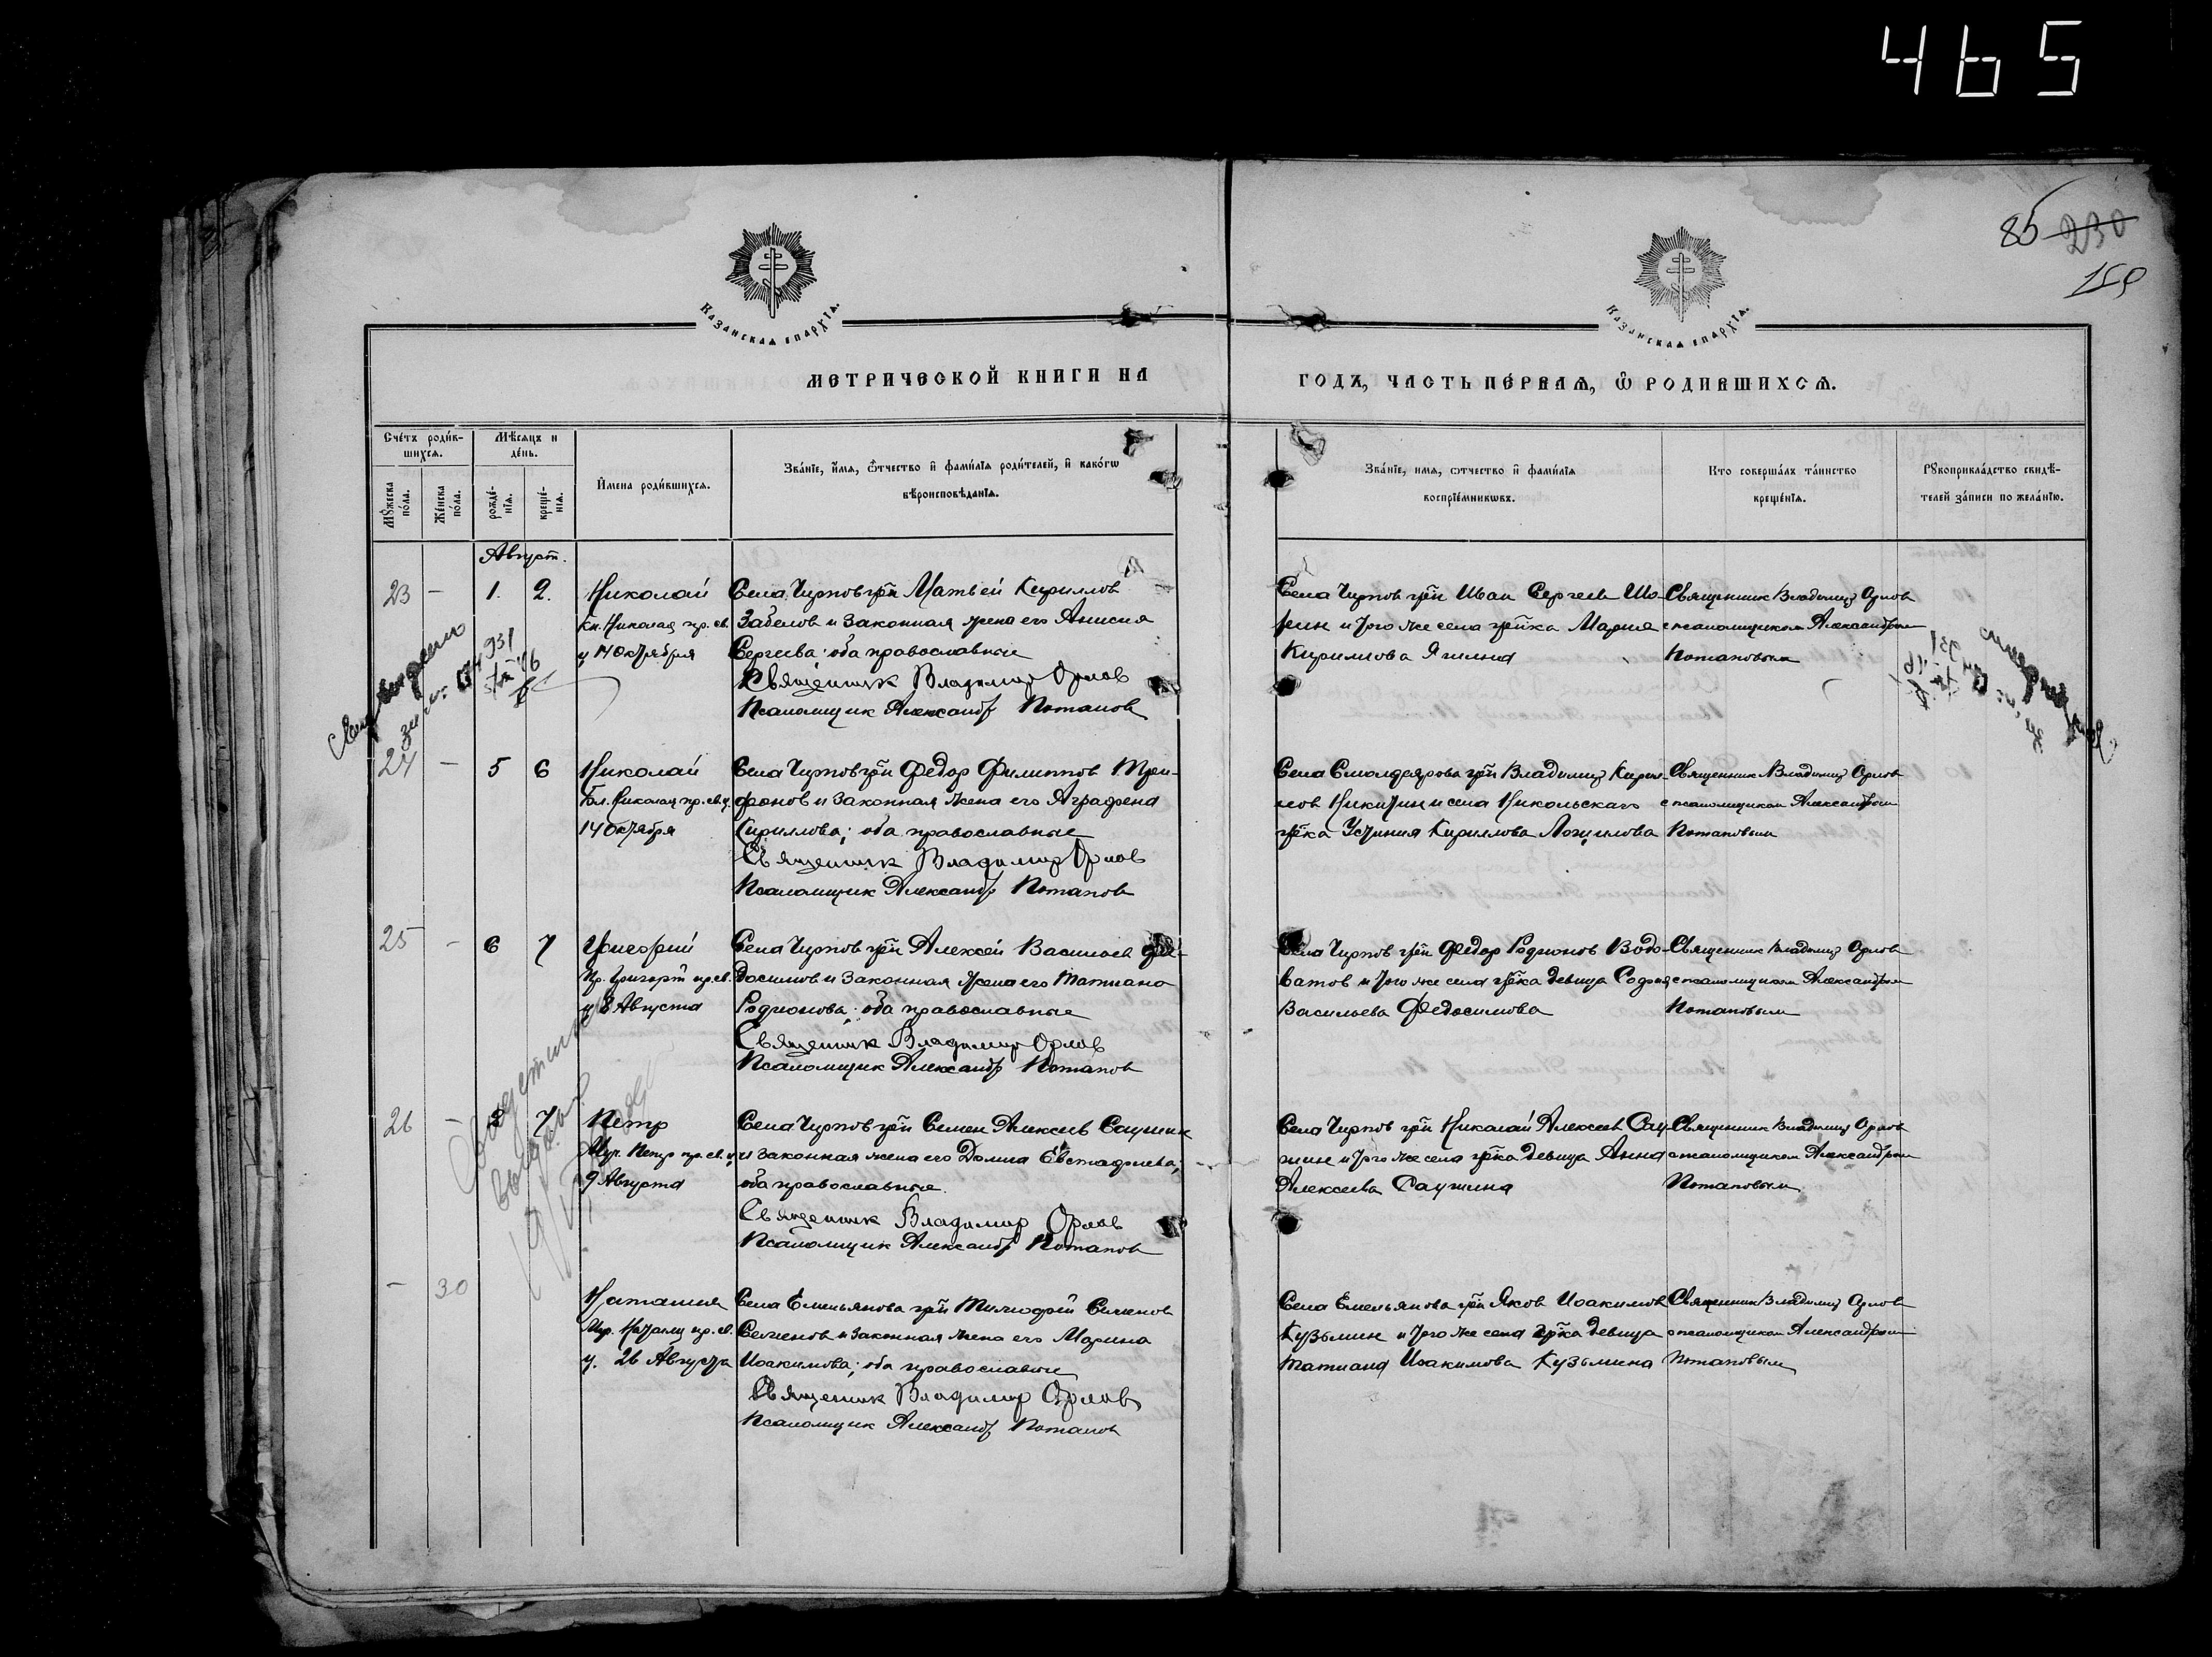 465
85 230
159
КАЗАНСКАѦ ЕПАРХІѦ.
КАЗАНСКАѦ ЕПАРХІѦ.
МЕТРИЧЕСКОЙ КНИГИ НА ГОДЪ, ЧАСТЬ ПЕРВАѦ, Ѽ РОДИВШИХСѦ.
Счетъ родив-
шихсѧ.
Мѣсѧцъ и
день.
Мꙋжеска пола.
Женска пола.
рожде-
нїѧ.
креще-
нїѧ.
Имена родившихсѧ.
Званїе, имѧ, ѿчество и фамилїѧ родителей, и какогѡ
вѣроисповѣданїѧ.
Званїе, имѧ, отчество и фамилїѧ
воспрїемникѡвъ.
Кто совершалъ таинство
крещенїѧ.
Рꙋкоприкладство свидѣ-
телей записи по желанїю.
Август.
23 - 1. 2. Николай
Николая пр. св.
ц 14 Октября
Села Чурпов гр-н Матвей Кириллов
Забелов и законная жена его Анисия
Сергеева; оба православные
Священник Владимир Орлов
Псаломщик Александр Потапов
Села Чурпов гр-н Иван Сергеев
и того же села гр-ка Мария
Кириллова
Священник Владимир Орлов
с псаломщиком Александром
Потаповым
24 - 5 6 Николай
Николая пр. св. ц.
14 Октября
Села Чурпов гр-н Федор Филиппов Три-
фонов и законная жена его Аграфена
Кириллова; оба православные
Священник Владимир Орлов
Псаломщик Александр Потапов
Села гр-н Владимир Кирил-
лов Никитин и села Никольскаго
гр-ка Устиния Кириллова
Священник Владимир Орлов
с псаломщиком Александром
Потаповым
25 - 6 7 Григорий
Пр. Григорий пр. св.
ц 8 Августа
Села Чурпов гр-н Алексей Васильев Фе-
досимов и законная жена его Татиана
Родионова; оба православные
Священник Владимир Орлов
Псаломщик Александр Потапов
Села Чурпов гр-н Федор Родионов Водо-
ватов и того же села гр-ка девица София
Васильева Федосимова
Священник Владимир Орлов
с псаломщиком Александром
Потаповым
26 - 2 7 Петр
Муч. Петр пр. св. ц.
9 Августа
Села Чурпов гр-н Семен Алексеев Саушин
и законная жена его Домна Евстафиева;
оба православные.
Священник Владимир Орлов
Псаломщик Александр Потапов
Села Чурпов гр-н Николай Алексеев Сау-
шин и того же села гр-ка девица Анна
Алексеева Саушина
Священник Владимир Орлов
с псаломщиком Александром
Потаповым
- 30 Наталия
Мр. Наталии пр. св.
ц. 26 Августа
Села Емельянова гр-н Тимофей Семенов
Семенов и законная жена его Марина
Иоакимова; оба православные
Священник Владимир Орлов
Псаломщик Александр Потапов
Села Емельянова гр-н Яков Иоакимов
Кузьмин и того же села гр-ка девица
Татиана Иоакимова Кузьмина
Священник Владимир Орлов
с псаломщиком Александром
Потаповым